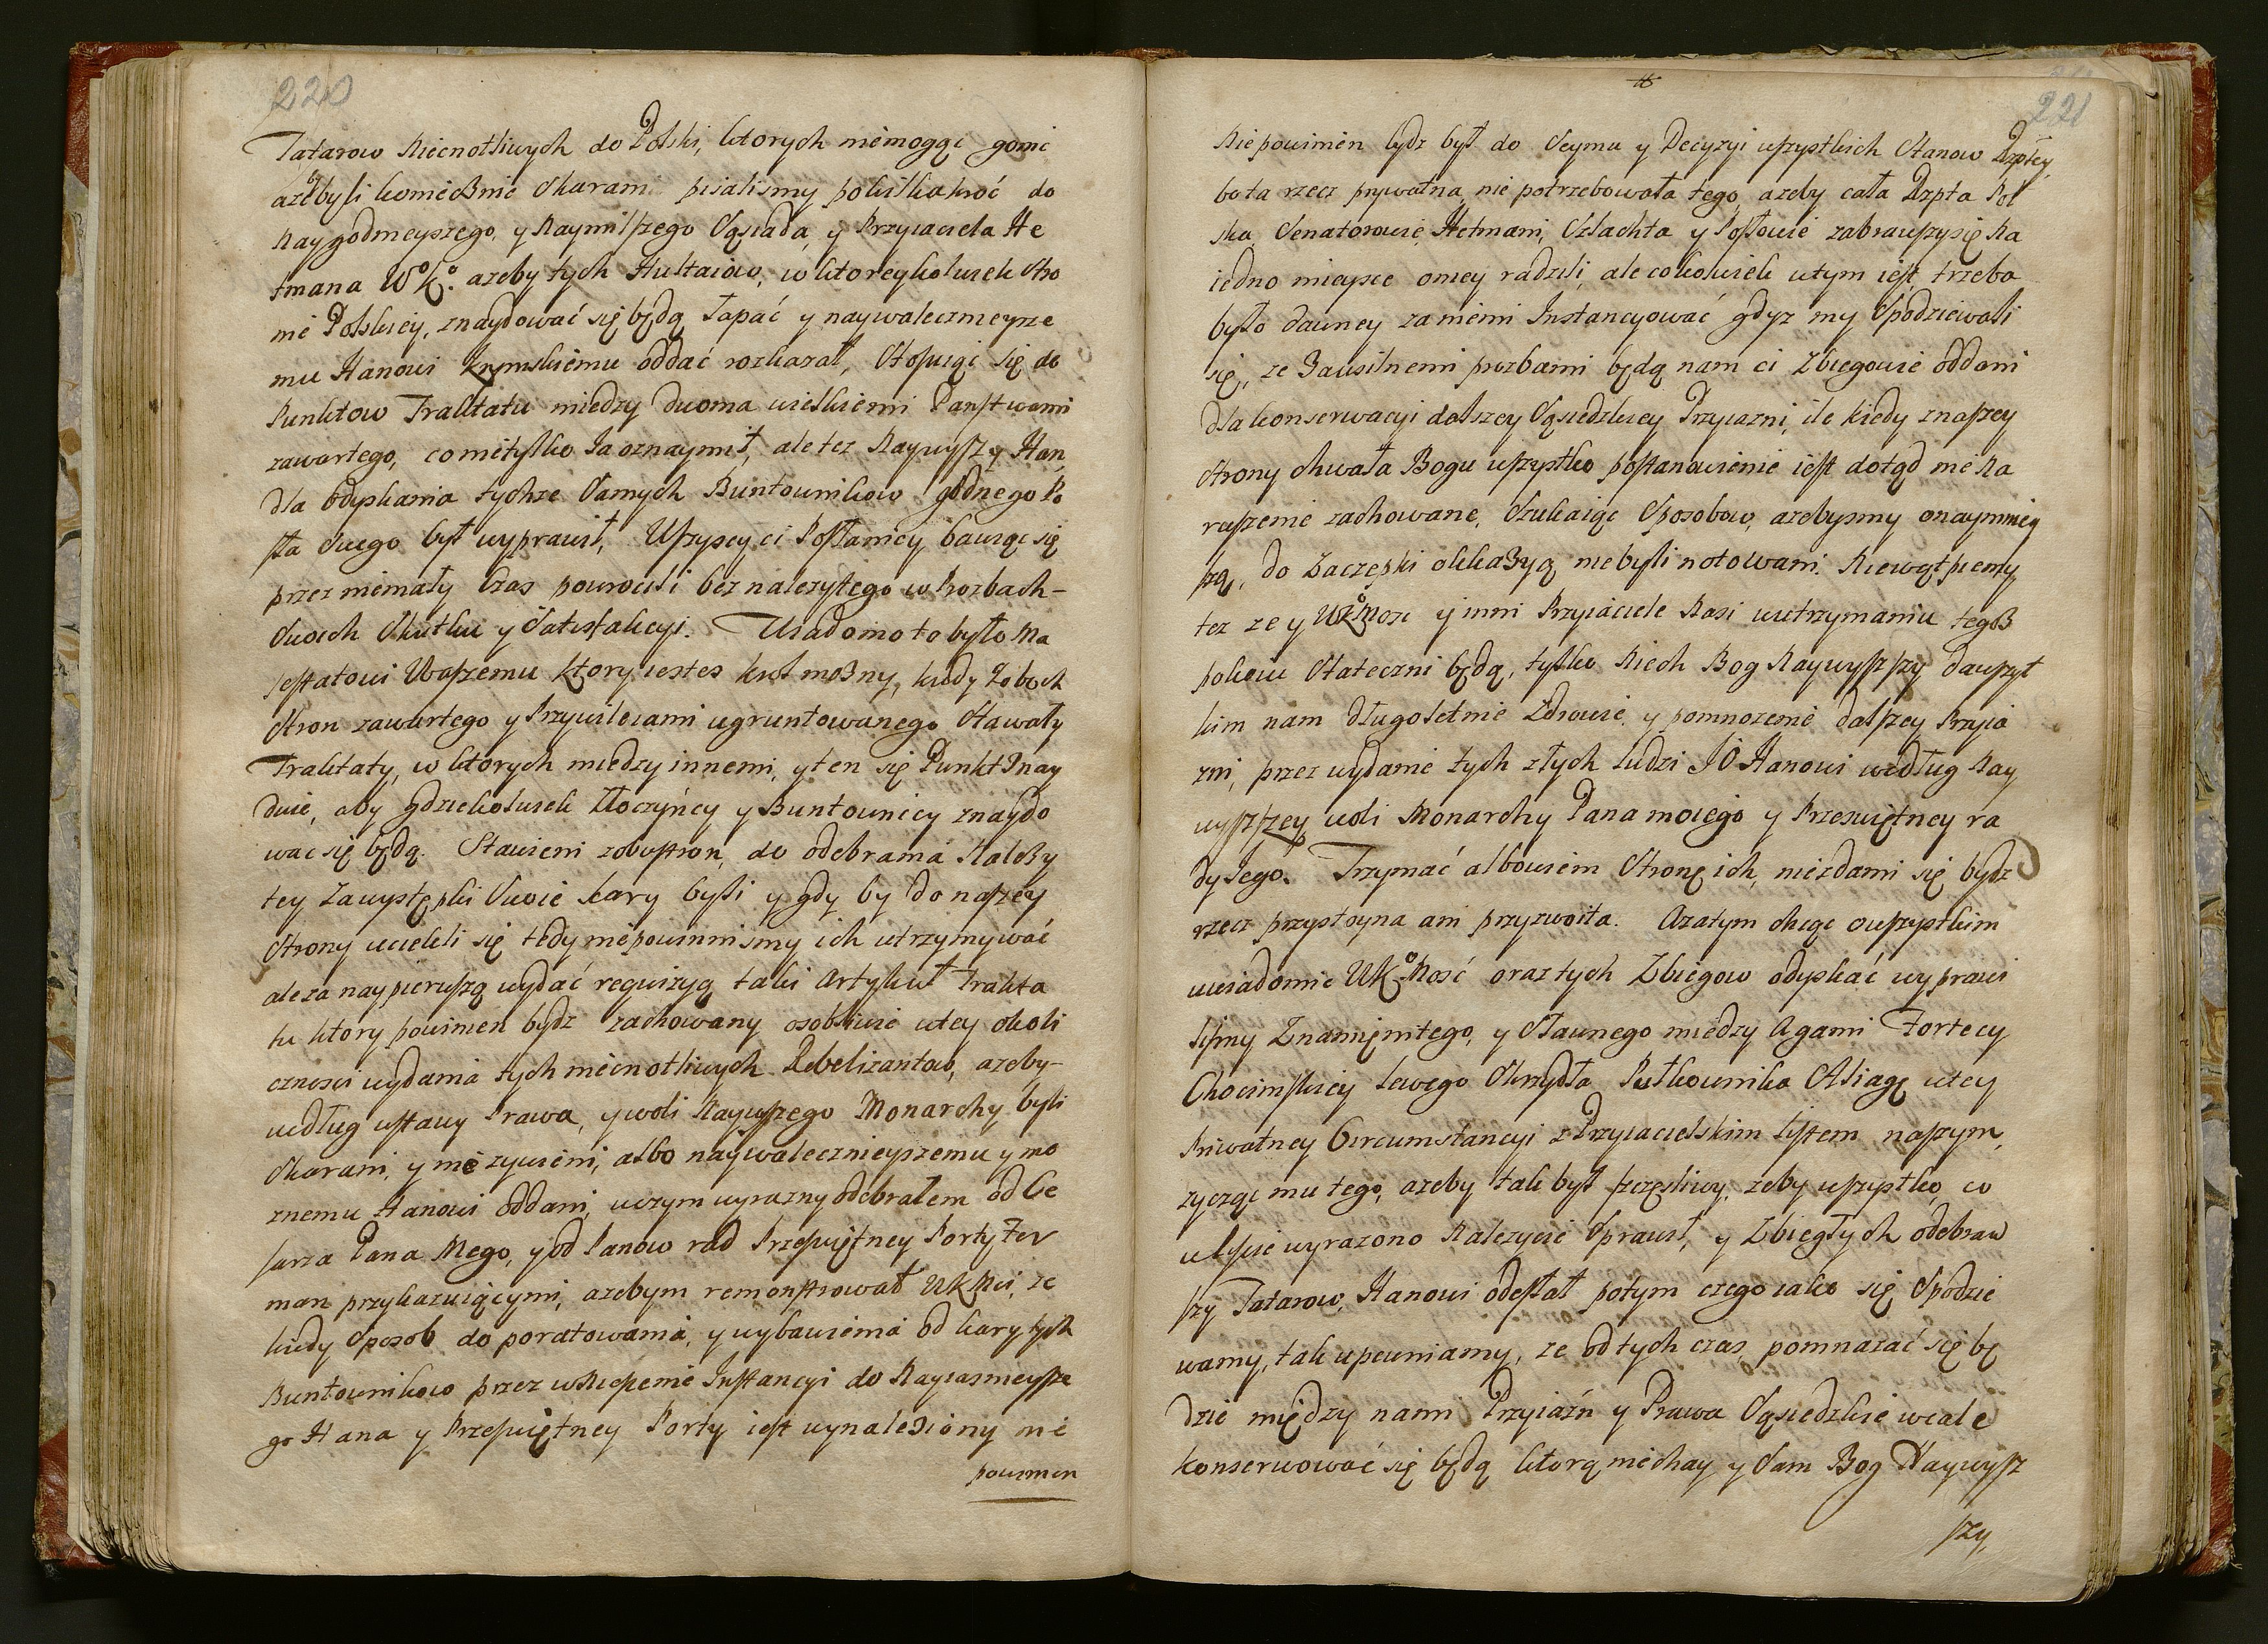 220
Tatarow Niecnotliwych do Polski, ktorych niemogąc gonić
ażebyli koniecznie skarani pisalismy pokilkakroć do
Naygodnieyszego, y Naymilszego Sąsiada, y Przyiaciela He
tmana WoKo. azeby tych Hultaiow, w ktoreykolwiek stro
nie Polskiey, znaydować się będą łapać y naywalecznieysze
mu Hanowi Krymskiemu oddać rozkazał, stosuiąc się do
Punktow Traktatu miedzy dwoma wielkiemi Panstwami
zawartego, co nietylko Ia oznaymił, ale tez Naywyszy Han
dla odyskania tychze samych Buntownikow godnego Po
sła swego był wyprawił, Wszyscy ci Posłanicy bawiąc się
przez niemały Czas powrocili bez nalezytego w Prozbach-
swoich skutku y satisfakcyi. Wiadomo to było Ma
jestatowi Waszemu ktory iestes krol mozny, kiedy z obuch
stron zawartego y Przywileiami ugruntowanego stawały
Traktaty, w ktorych miedzy innemi, y ten się Punkt znay
duie, aby gdziekolwiek Złoczyńcy y Buntownicy znaydo
wac się będą. Stawieni zobustron, do odebrania Nalezy
tey Zawystępki swoie kary byli y gdy by do naszey
strony uciekli się tedy niepowinnismy ich utrzymywać
ale za naypierwszą wydać requizyą taki Artykuł Trakta
tu ktory powinien bydz zachowany osobliwie wtey okoli
cznosci wydania tych niecnotliwych Rebelizantow, azeby-
według ustawy Prawa, y woli Naywyszego Monarchy byli
skarani, y nie zywieni, albo naywalecznieyszemu y mo
znemu Hanowi oddani, wczym wyrazny odebrałem od Ce
sarza Pana Mego, y od Panow rad Przeswiętney Porty Fer
man przykazuiącymi, azebym remonstrował WKMci, ze
kiedy sposob do poratowania, y wybawienia od kary tych
Buntownikow przez wniesienie Instancyi do Nayiasnieysze
go Hana y Przeswiętney Porty iest wynaleziony nie
powinien
221
Nie powinien bydz był do Seymu y Decyzyi wszystkich Stanow Rzptey
bo ta rzecz prywatna, nie potrzebowała tego, azeby cała Rzpta Pol
ska, Senatorowie, Hetmani, Szlachta y Posłowie zabrawszy się na
iedno mieysce oniey radzili, ale cokolwiek wtym iest, trzeba
było dawney zaniemi Instancyować gdyz my spodziewali
się, ze Zausilnemi prozbami będą nam ci Zbiegowie oddani
dla konserwacyi dalszey Sąsiedzkiey Przyiazni, ile kiedy znaszey
strony chwała Bogu wszystko postanowienie iest dotąd nie na
ruszenie zachowane, szukaiąc sposobow, azebysmy onaymniey
szą, do Zaczepki okkazyą niebyli notowani. Niewątpiemy
tez ze y WKoMosc y inni Przyiaciele Nasi wutrzymaniu tegoz
pokoiu stateczni będą, tylko niech Bog Naywyszszy dawszyt
kim nam długoletnie Zdrowie, y pomnozenie dalszey Przyia
zni, przez wydanie tych złych ludzi JO Hanowi według Nay
wyszszey woli Monarchy Pana moiego y Przeswiętney ra
dy Iego. Trzymać albowiem stronę ich, niezdami się bydz
rzecz przystoyna ani przyzwoita. Azatym chcąc owszystkim
uwiadomic WKoMosć oraz tych Zbiegow odyskać wyprawi
lismy Znamienitego, y sławnego miedzy Agami Fortecy
Chocimskiey lewego skrzydła Pułkownika Aliagę wtey
Priwatney Circumstancyi z Przyiacielskim listem naszym,
zycząc mu tego, azeby tak był szczęsliwy, zeby wszystko, co
wliscie wyrazono nalezycie sprawił, y Zbiegłych odebraw
szy Tatarow, Hanowi odesłał potym czego iako się spodzie
wamy, tak upewniamy, ze od tych czas pomnazać się bę
dzie między nami Przyiaźń y Prawa Sąsiedzkie wcale
konserwować się będą ktorą niechay y sam Bog Naywysz
szy,